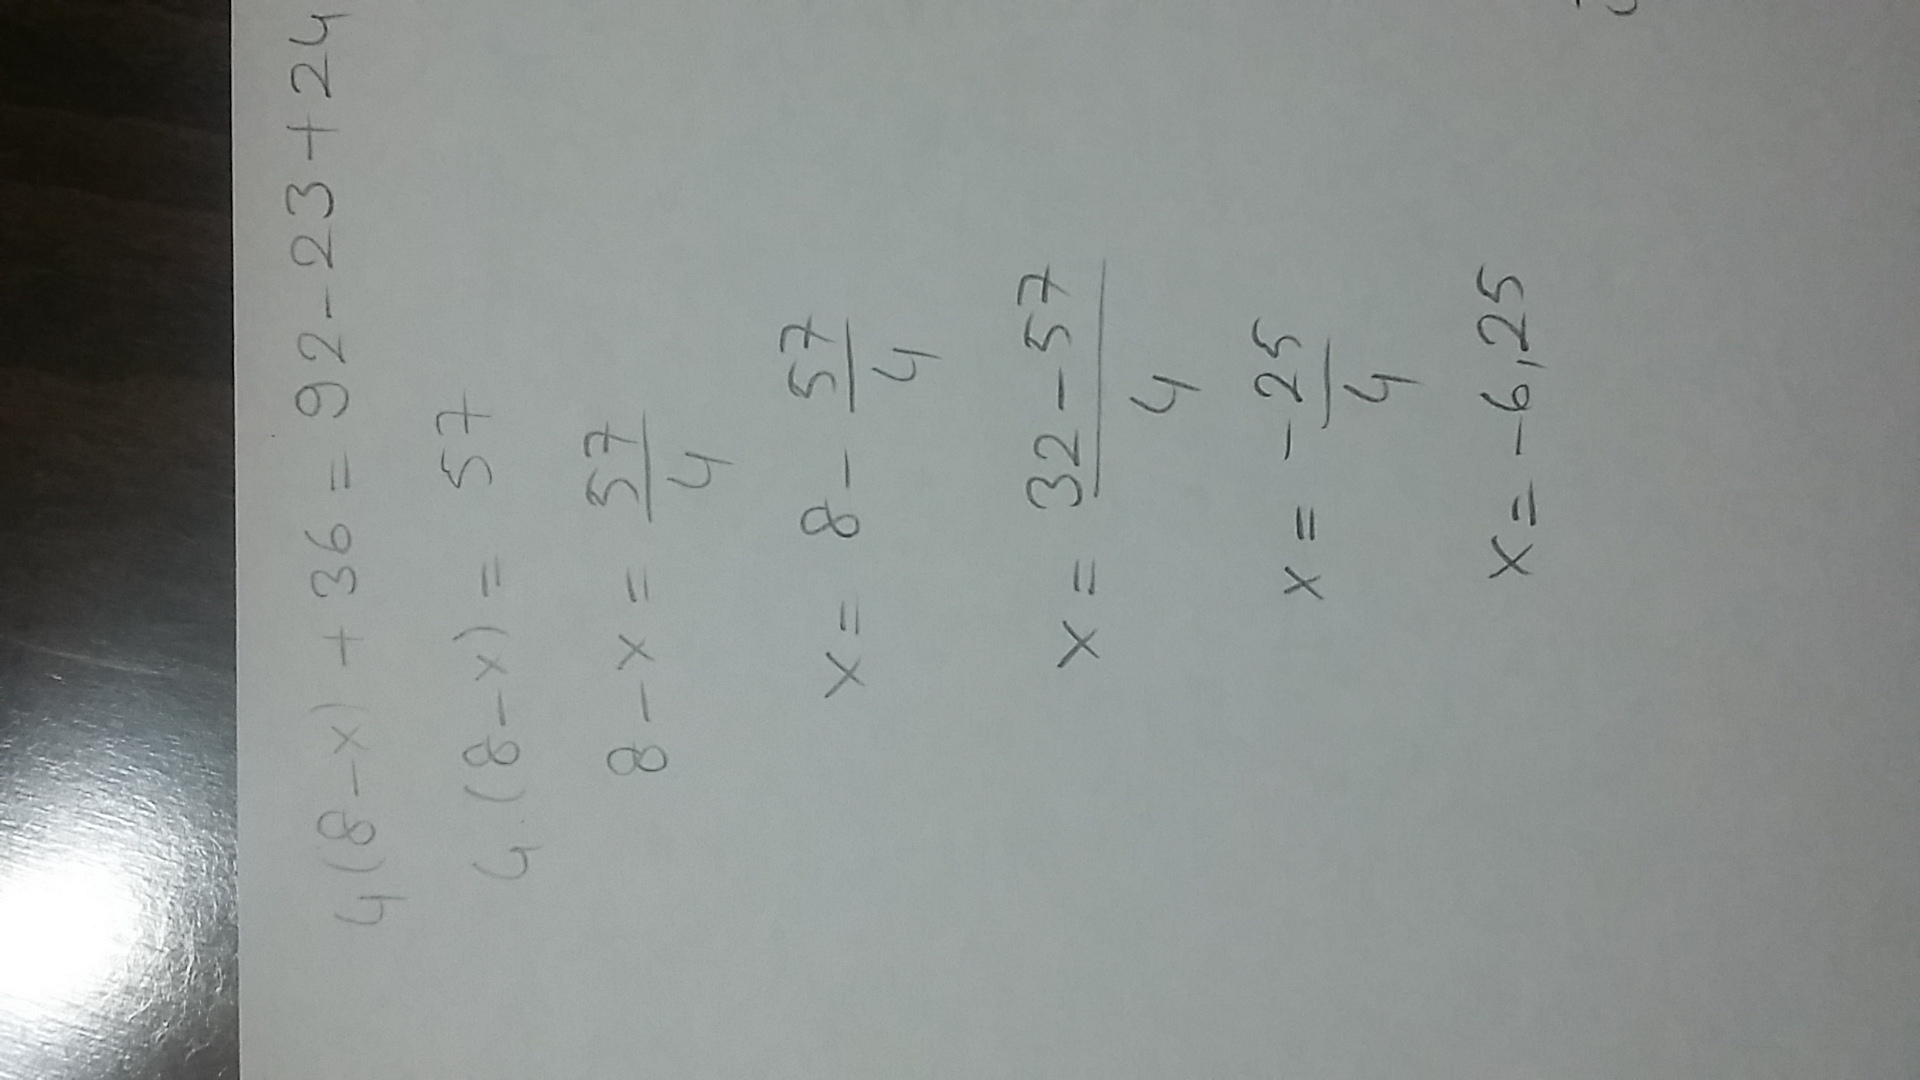 4(8-x)+36=92-23+24
4.(8-x)= 57
8-x= 57/4
x= 8- 57/4
x= 32-57/4
x= -25/4
x= -6,25